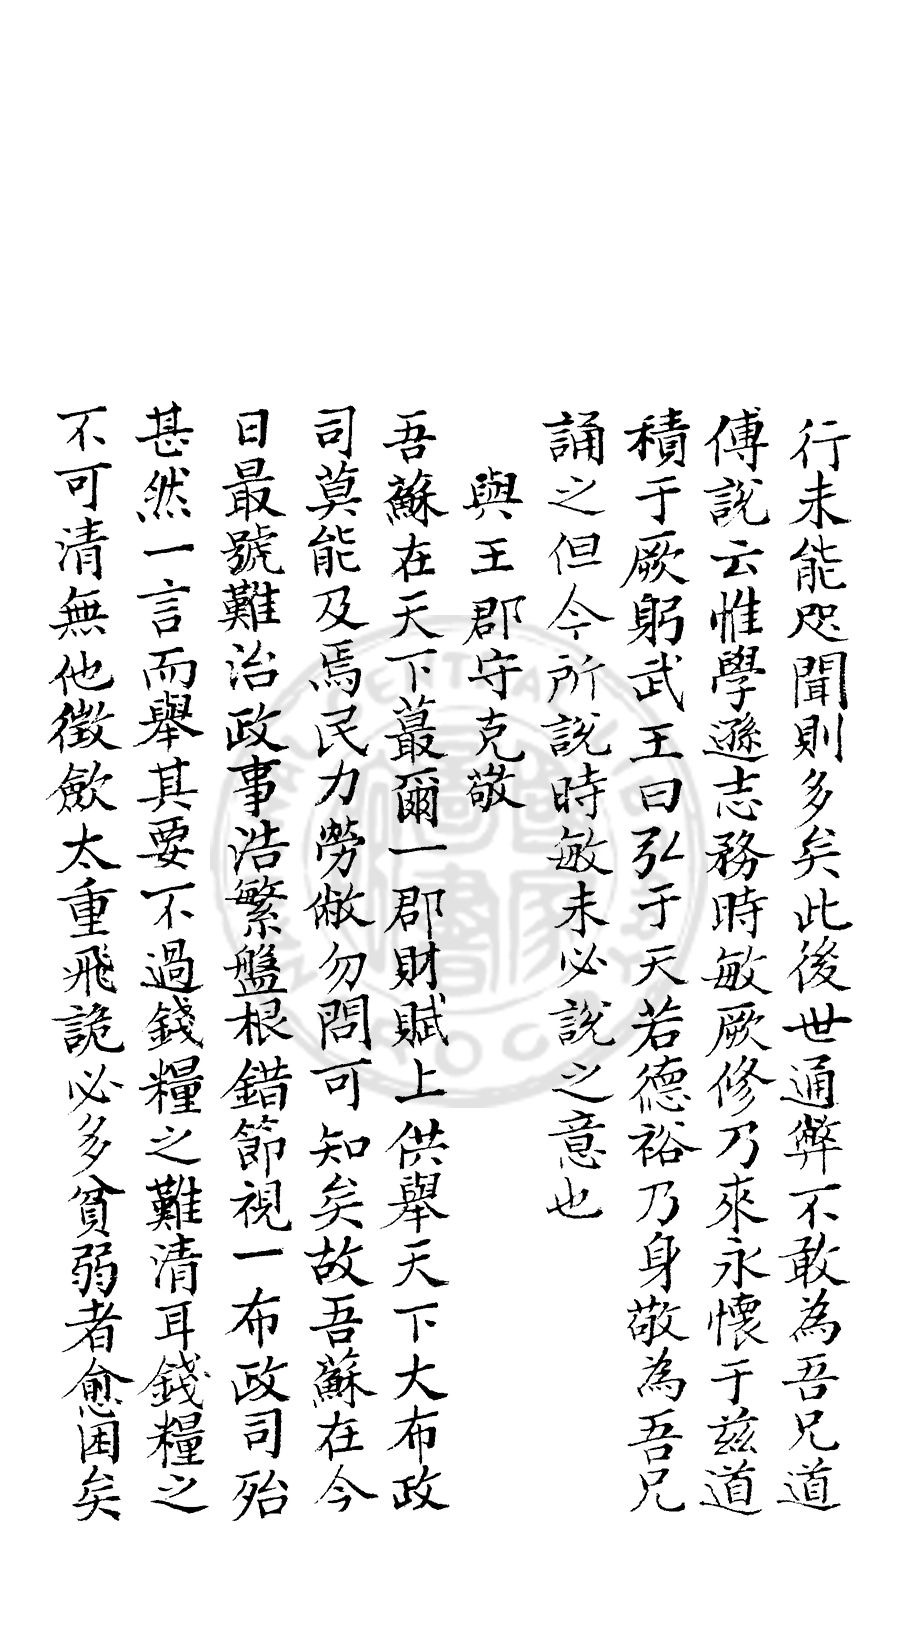 行未能咫聞則多矣此後世通弊不敢為吾兄道
傅說云惟學遜志務時敏厥修乃來永懷于茲道
積于厥躬武王曰弘于天若德裕乃身敬為吾兄
誦之但今所說時敏未必說之意也
與王郡守克敬
吾蘇在天下蕞爾一郡財賦上供舉天下大布政
司莫能及焉民力勞敝勿問可知矣故吾蘇在今
日最號難治政事浩繁盤根錯節視一布政司殆
甚然一言而舉其要不過錢糧之難清耳錢糧之
不可清無他徵斂太重飛詭必多貧弱者愈困矣